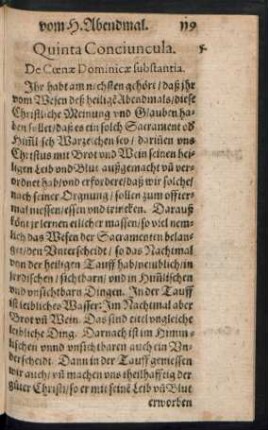 vom H. Abendmal. 119
Quinta Conciuncula. 5.
De Cœnæ Dominicæ substantia.
Ihr habt am nechsten gehört / daß jhr
vom Wesen deß heilige Abendmals / diese
Christliche Meinung vnd Glauben ha-
ben sollet / daß es ein solch Sacrament oð
Him̃lisch Warzeichen sey / dariñen vns
Christus mit Brot vnd Wein seinen hei-
ligen Leib vnd Blut außgemacht vñ ver-
ordnet hab / vnd erfordere / daß wir solche /
nach seiner Ordnung / sollen zum offter-
mal niessen / essen vnd trincken. Darauß
könt jr lernen etlicher massen / so viel nem-
lich das Wesen der Sacramenten belan-
get / den Vnterscheidt / so das Nachtmal
von der heiligen Tauff hab / nemblich / in
jrrdischen / sichtbarn / vnd in Him̃lischen
vnd vnsichtbarn Dingen. In der Tauff
ist leibliches Wasser: Im Nachtmal aber
Brot vñ Wein. Das sind eitel vngleiche
leibliche Ding. Darnach ist im Himm-
lischen vnnd vnsichtbaren auch ein Vn-
derscheidt. Dann in der Tauff geniessen
wir auch / vñ machen vns theilhafftig der
güter Christi / so er mit seinẽ Leib vñ Blut
erworben